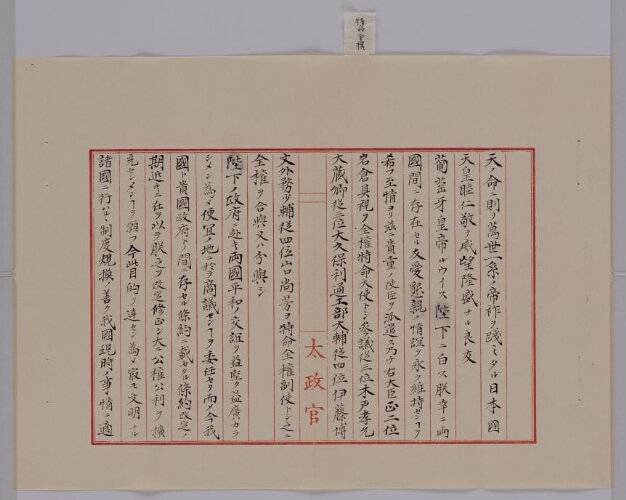 特命全権
天ノ命ニ則リ萬世一系ノ帝祚ヲ踐ミタル日本國
天皇睦仁敬テ威望隆盛ナル良友
葡萄牙皇帝ルウイス陛下ニ白ス朕幸ニ両
國間ニ存在セル友愛懇親ノ情誼ヲ永ク維持センヿヲ
希フノ至情ヨリ茲ニ貴重ノ使臣ヲ派遣ス乃チ右大臣正二位
岩倉具視ヲ全權特命大使トシ參議從三位木戸孝允
大蔵卿從三位大久保利通工部大輔從四位伊藤博
太政官
文外務少輔從四位山口尚芳ヲ特命全權副使トシ之ニ
全權ヲ合與又ハ分與シ
陛下ノ政府ニ赴キ両國平和ノ交誼ヲ益堅ク益廣カラ
シメン為メ便宜ノ地ニ於テ商議センヿヲ委任セリ而シテ今我
國ト貴國政府トノ間ニ存セル條約ニ載セタル條約改定ノ
期近キニ在ルヲ以テ朕之ヲ改定修正シ大ニ公權公利ヲ擴
充センメンヿヲ願フ今此目的ヲ達セン為メ最モ文明ナル
諸國ニ行ハルヽ制度規摸ノ善ク我國現時ノ事情ニ適